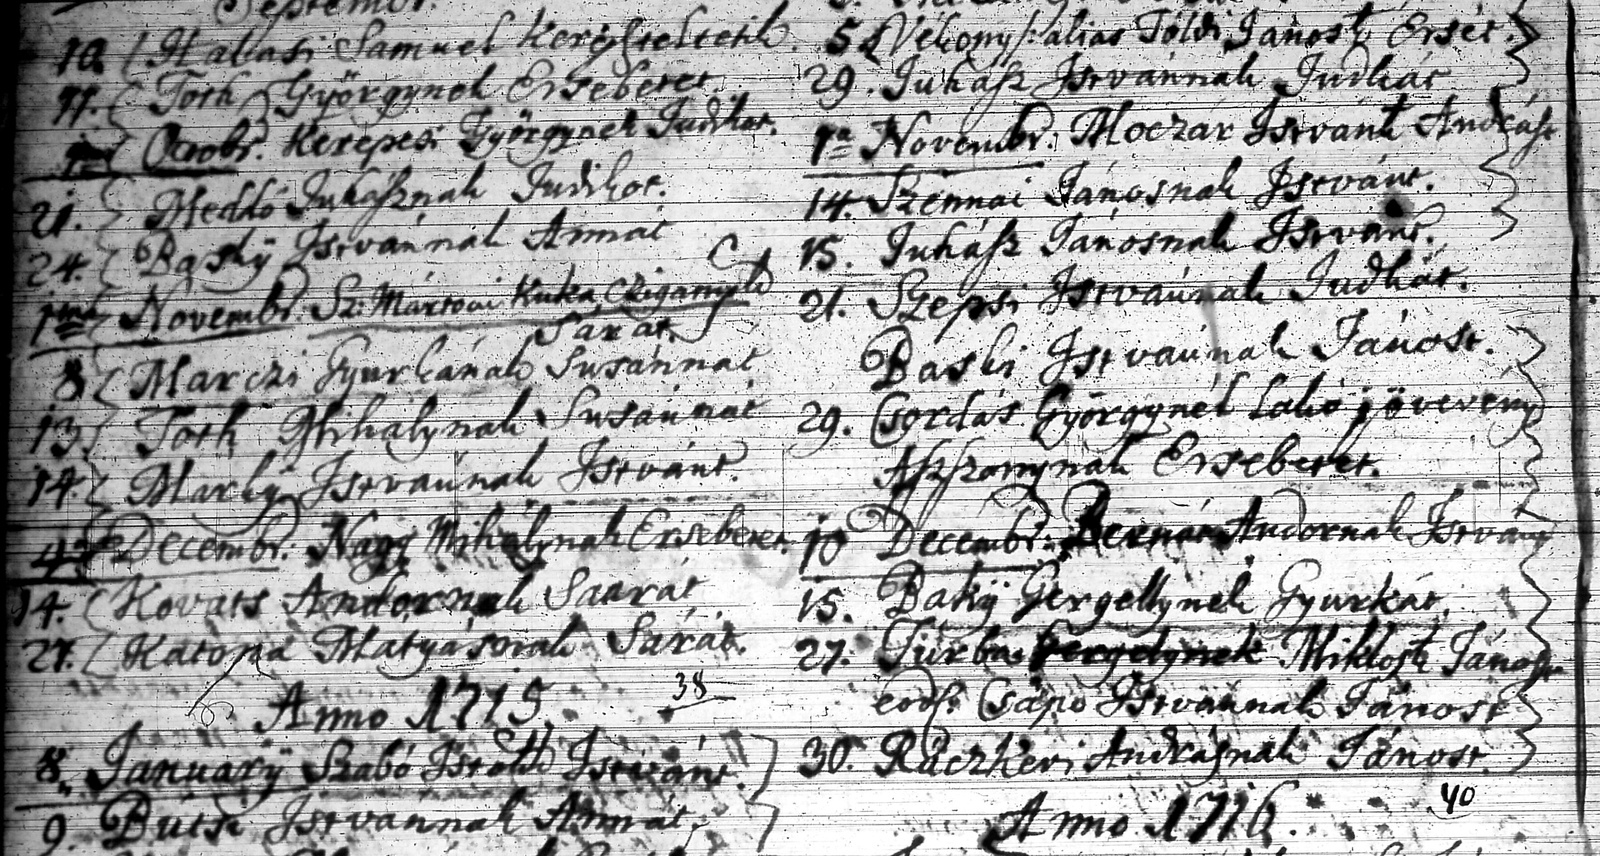 Septembr.
10. Halasi Samuel
11. Toth Györgynek Ersebetet.
Octobr. Kerepesi Györgynek Judikot.
21. Meddö Juhásznak Judikot.
24. Basky Istvánnak Annát
Novembr. Sz: Mártoni Kuka Czigánynak
Sárát.
8. Marczi Gyurkának Susánnát
13. Toth Mihalynak Susánnát
14. Marky Istvánnak Istvánt.
4. Decembr. Nagy Mihálynak Ersebetet.
14. Kovats Andornak Saarát
27. Katona Matyásnak Sárát.
Anno 1715. 38
8. Januarÿ Szabó Istvánt.
9. Butsi Istvannak Annát.
5. Vékony alias Toldi Jánost Ersét.
29. Juhász Istvánnak Judkát
1a Novembr. Moczár Istvánt Andrást
14. Szennai Jánosnak Istvánt.
15. Juhász Jánosnak Istvánt.
21. Szepsi Istvánnak Judkát.
Baski Istvánnak Jánost.
29. Csordás Györgynél lakó jövevény
Aszszonynak Ersebetet.
10 Decembr. Andornak Istvánt
15. Baky Gergellynek Gyurkát.
27. Miklost Jánost
eod. Csapo Istvánnak Jánost
30. Ráczkevi Andrásnak Jánost.
Anno 1716. 40